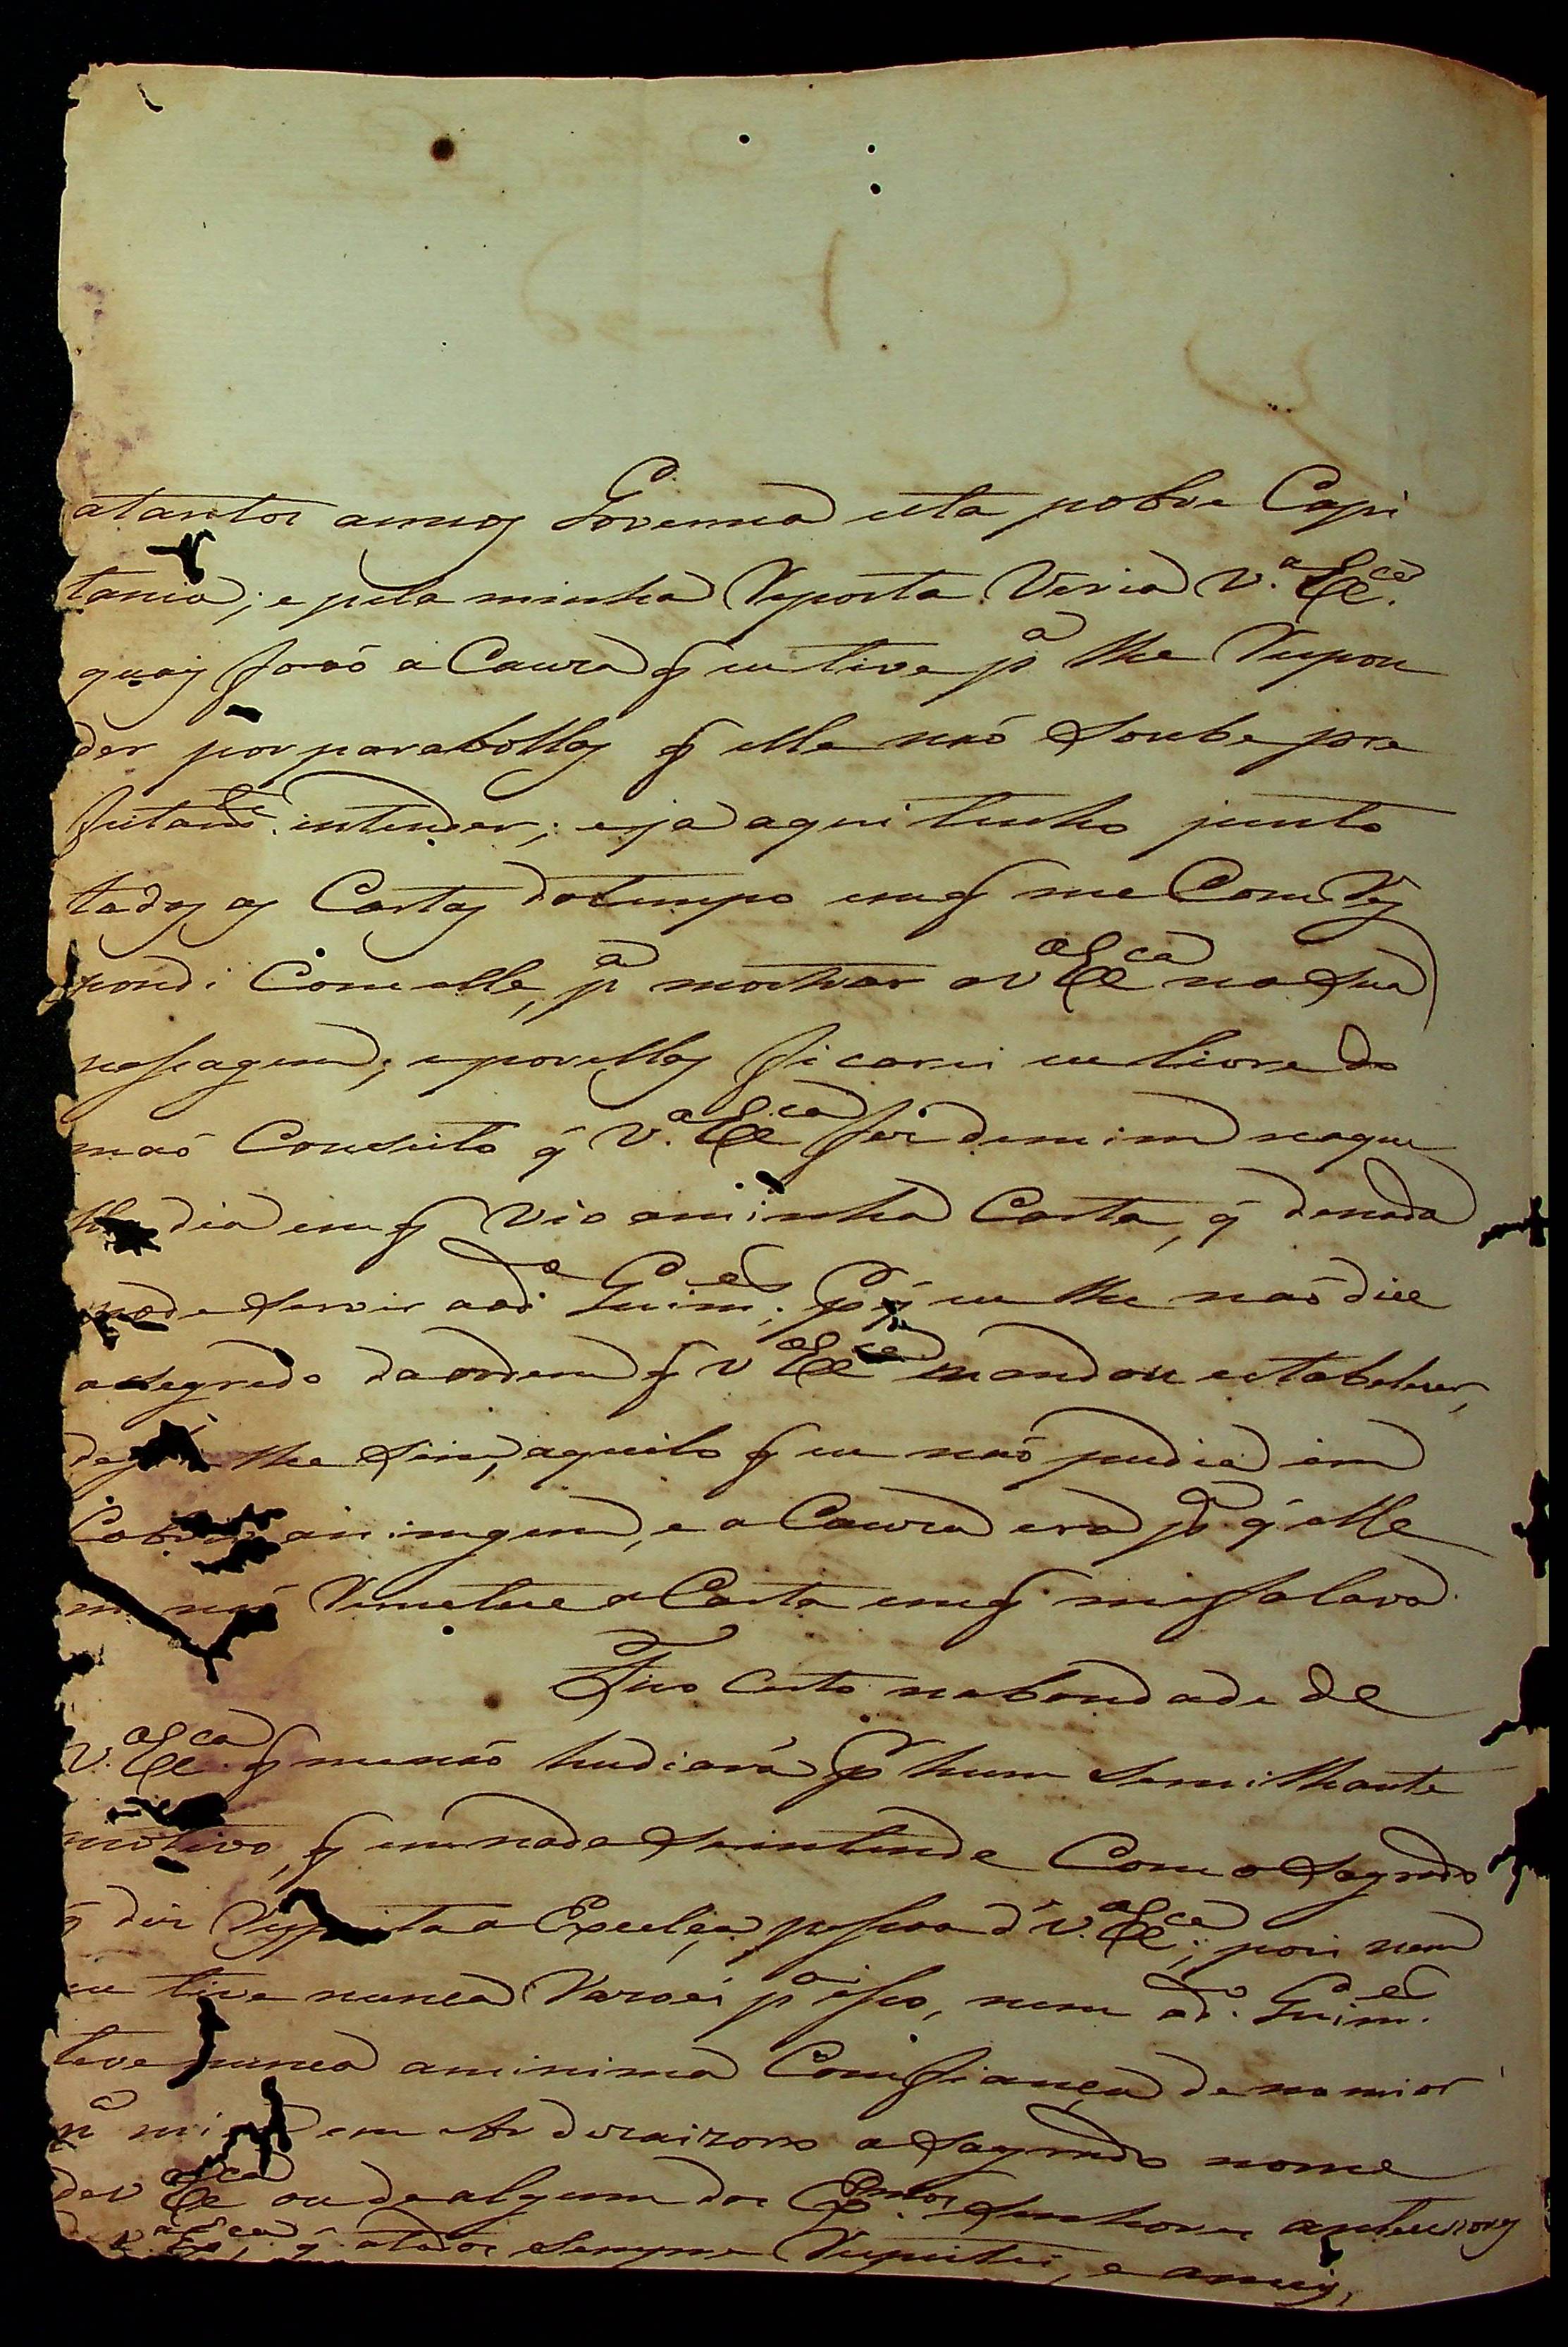 atantos annos Governa esta pobre Capi
tania; e pela minha Reposta Veria V.ª Ex.ca
quaes foraõ a Cauza q̃ eu tive p.a lhe Respon
der por parabollas q̃ elle naõ Soube per
feitam.te intender; eja aqui tenho junto
todas as Cartas dotempo emq̃ me Corres
pondi Comelle, p.a mostrar aV.ª Ex.ca na Sua
passagem; eporellas ficarei eu livre do
maõ Conseito q̃ V.ª Ex.ca fez demim naque
lle dia emq̃ Vio aminha Carta, q̃ denada
pode Servir aod.o Guim.es, p.r q̃ eu lhe naõ dice
osegredo daordem q̃ V.ª Ex.ca mandou estabelecer,
lhe Sim, aquilo q̃ eu naõ podia im
a ninguem, e a Cauza era p.a q̃ elle
naõ Remetece a Carta emq̃ mefalava.
Fico Certo nabondade de
V.ª Ex.ca q̃ menaõ hudiará p.r hum Semilhante
motivo, q̃ em nada Seintende Com o Sagrado
q̃ diz a Excelça pessoa d'V.ª Ex.ca; pois nem
eu tive nunca Razaõ p.a isso, nem od.o Guim.es
teve nunca aminima Comfiança denomiar
em o Sagrado nome
deV.ª Ex.ca oudealgum dos Ex.mos Senhores antecesores
de V.ª Ex.ca, q̃ atodos Sempre Respeitei, e amei,